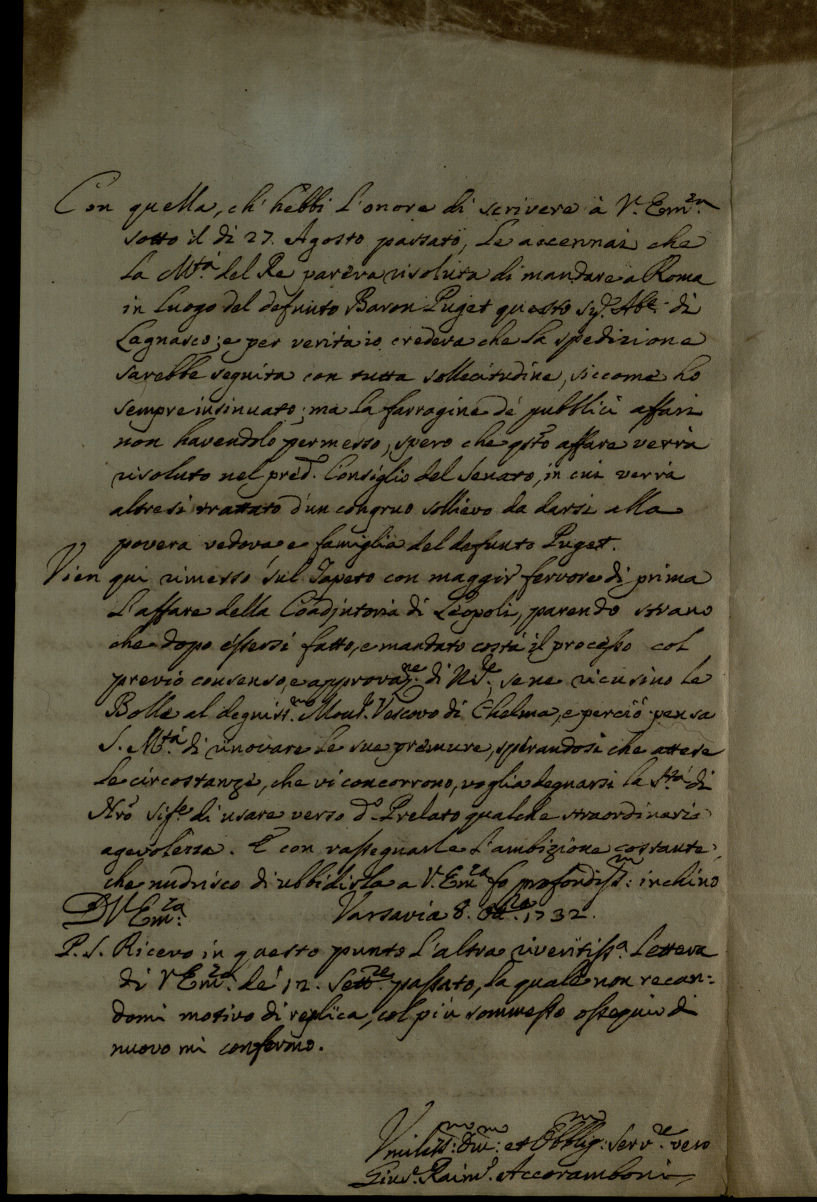 Con quella, ch' hebbi l'onore di scrivere à V. Em.za
sotto il di 27. Agosto passato, Le accennai che
La M.tà del Re pareva risoluta di mandare a Roma
in luogo del defunto Baron Puget questo Sig.r Ab.e di
Lagnasco; e per verità io credeva che la spedizione
sarebbe seguita con tutta sollecitudine, siccome ho
sempre insinuato; ma la farragine de' pubblici affari
non havendolo permesso, spero che q͂sto affare verrà
risoluto nel pred.o Consiglio del Senato, in cui verrà
altresi trattato d'un congruo sollievo da darsi alla
povera vedova e famiglia del defunto Puget.
Vien qui rimesso sul Tapeto con maggir fervore di prima
L'affare della Coadjutoria di Leopoli, parendo strano
che dopo essersi fatto, e mandato costà il processo col
previo consenso, e approvaz.ne di N. S.re, se ne ricusino le
Bolle al degniss.mo Mons.r Vescovo di Chelma, e perciò pensa
S. M.tà di rinovare le sue premure, sperandosi che attese
le circostanze, che vi concorrono, voglia degnarsi la S.tà di
Nrō Sig.re di usare verso d.o Prelato qualche straordinaria
agevolezza. E con rassegnarle l'ambizione costante,
che nudrisco di ubbidirla a V. Em.za fo profondiss.mo inchino
D V Em.za Varsavia 8. Ott.re 1732.
P. S. Ricevo in questo punto L'altra riveritiss.a Lettera
di V Em.za de' 12. Sett.re passato, la quale non recan=
domi motivo di replica, col più sommesso ossequio di
nuovo mi confermo.
Vmiliss.mo Div.mo et Obblig.mo Serv.re vero
Gius. Raim. Accoramboni